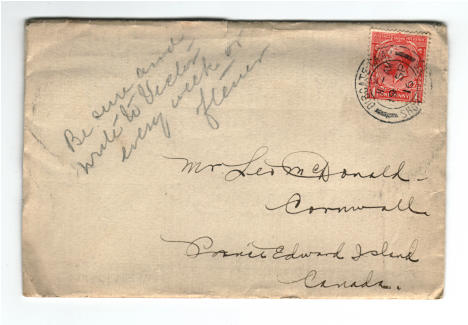 Be sure and
write to Hector
every week or
oftener
ONE PENNY
Mr Leo McDonald
Cornwall.
Prince Edward Island
Canada.